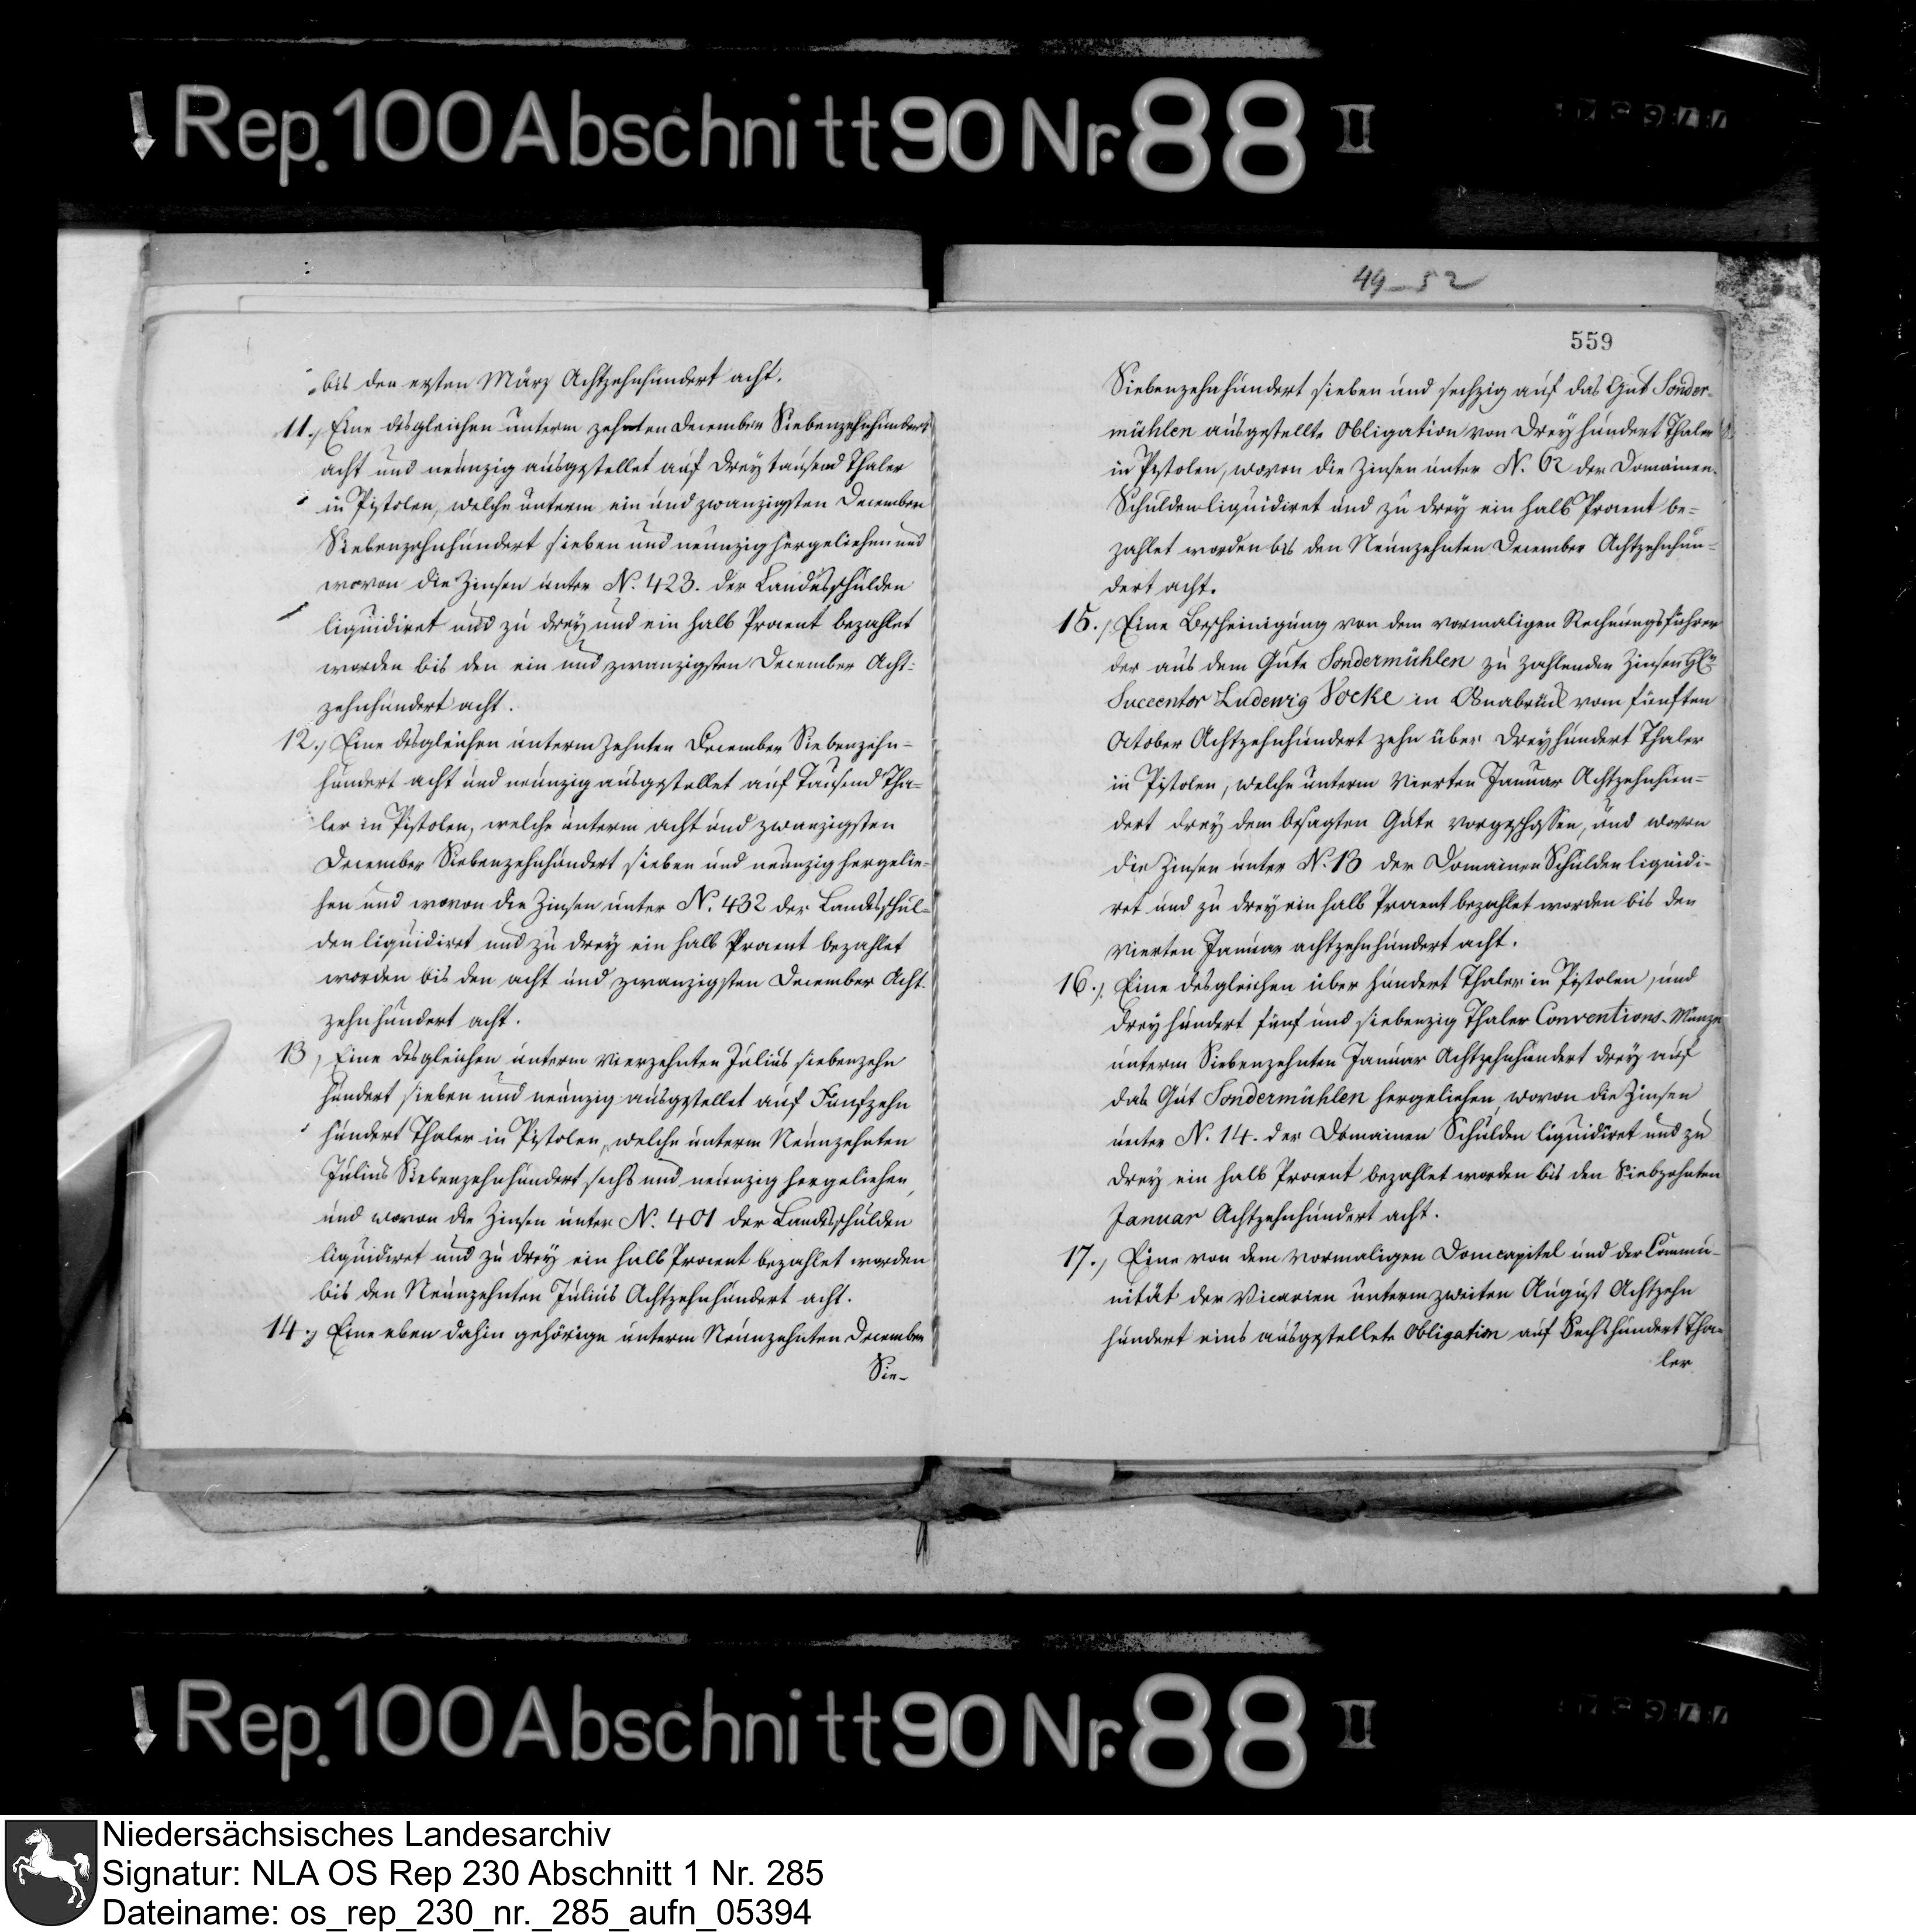 Rep. 100 Abschnitt 90 Nr. 88 II
49-52
559
bis den ersten März Achtzehnhundert acht.
11.) Eine desgleichen unterm zehnten December Siebenzehnhundert
acht und neunzig ausgestellet auf Drey tausend Thaler
in Pistolen, welche unterm ein und zwanzigsten December
Siebenzehnhundert sieben und neunzig hergeliehen und
wovon die Zinsen unter N. 423. der Landesschulden
liquidiret und zu drey und ein halb Procent bezahlet
worden bis den ein und zwanzigsten December Acht-
zehnhundert acht.
12.) Eine desgleichen unterm Zehnten December Siebenzehn-
hundert acht und neunzig ausgestellet auf Tausend Tha-
ler in Pistolen, welche unterm acht und zwanzigsten
December Siebenzehnhundert sieben und neunzig hergelie-
hen und wovon die Zinsen unter N. 432 der Landesschul-
den liquidiret und zu drey ein halb Procent bezahlet
worden bis den acht und zwanzigsten December Acht-
zehnhundert acht.
13.) Eine desgleichen unterm vierzehnten Julius siebenzehn
hundert sieben und neunzig ausgestellet auf Funfzehn
hundert Thaler in Pistolen, welche unterm Neunzehnten
Julius Siebenzehnhundert sechs und neunzig hergeliehen,
und wovon die Zinsen unter N. 401 der Landesschulden
liquidiret und zu drey ein halb Procent bezahlet worden
bis den Neunzehnten Julius Achtzehnhundert acht.
14.) Eine eben dahin gehörige unterm Neunzehnten December
Sie-
Siebenzehnhundert sieben und sechzig auf das Gut Sonder-
mühlen ausgestellte Obligation von Drey hundert Thaler
in Pistolen, wovon die Zinsen unter N. 62 der Domainen-
Schulden liquidiret und zu drey ein halb Procent be-
zahlet worden bis den Neunzehnten December Achtzehnhun-
dert acht.
15.) Eine Bescheinigung von dem vormaligen Rechnungsführer
der aus dem Gute Sondermühlen zu zahlenden Zinsen
Succentor Ludewig Vocke in Osnabrück vom fünften
October Achtzehnhundert zehn über Dreyhundert Thaler
in Pistolen, welche unterm Vierten Januar Achtzehnhun-
dert drey dem besagten Gute vorgeschossen, und wovon
die Zinsen unter N. 13 der Domainen Schulden liquidi-
ret und zu drey ein halb Procent bezahlet worden bis den
vierten Januar achtzehnhundert acht.
16.) Eine desgleichen über hundert Thaler in Pistolen, und
drey hundert fünf und siebenzig Thaler Conventions-Münze
unterm Siebenzehnten Januar Achtzehnhundert drey auf
das Gut Sondermühlen hergeliehen, wovon die Zinsen
unter N. 14. der Domainen Schulden liquidiret und zu
drey ein halb Procent bezahlet worden bis den Siebzehnten
Januar Achtzehnhundert acht.
17.) Eine von dem vormaligen Domcapitel und der Commu-
nität der Vicarien unterm zweiten August Achtzehn
hundert eins ausgestellete Obligation auf Sechshundert Tha-
ler
Rep. 100 Abschnitt 90 Nr. 88 II
Niedersächsisches Landesarchiv
Signatur: NLA OS Rep 230 Abschnitt 1 Nr. 285
Dateiname: os_rep_230_nr._285_aufn_05394